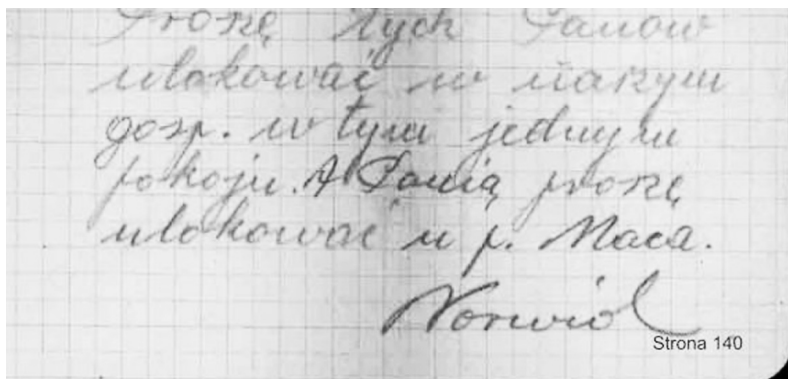 Proszę tych Panów
ulokować w naszym
gosp. w tym jednym
pokoju. A Panią proszę
ulokować u p. Maca.
Norwid
Strona 140